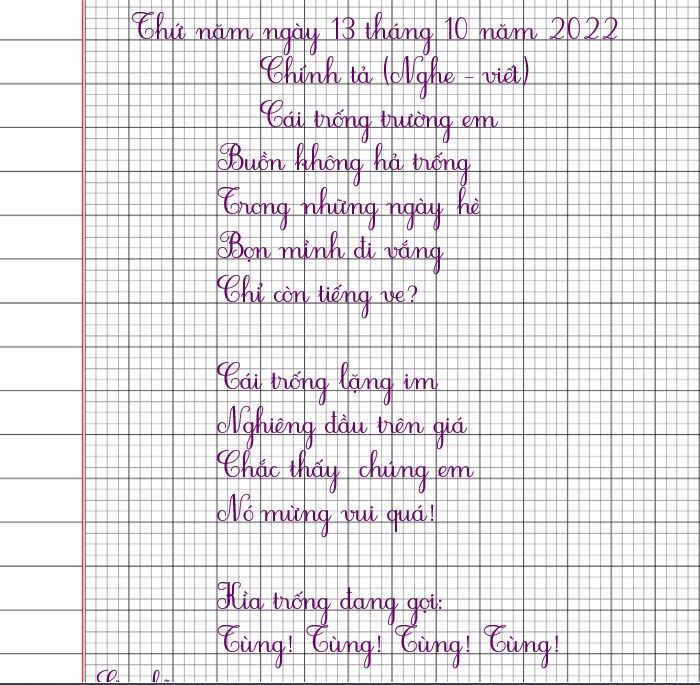 Thứ năm ngày 13 tháng 10 năm 2022
Chính tả (Nghe - viết)
Cái trống trường em
Buồn không hả trống
Trong những ngày hè
Bọn mình đi vắng
Chỉ còn tiếng ve?
Cái trống lặng im
Nghiêng đầu trên giá
Chắc thấy chúng em
Nó mừng vui quá!
Kìa trống đang gọi:
Tùng! Tùng! Tùng! Tùng!